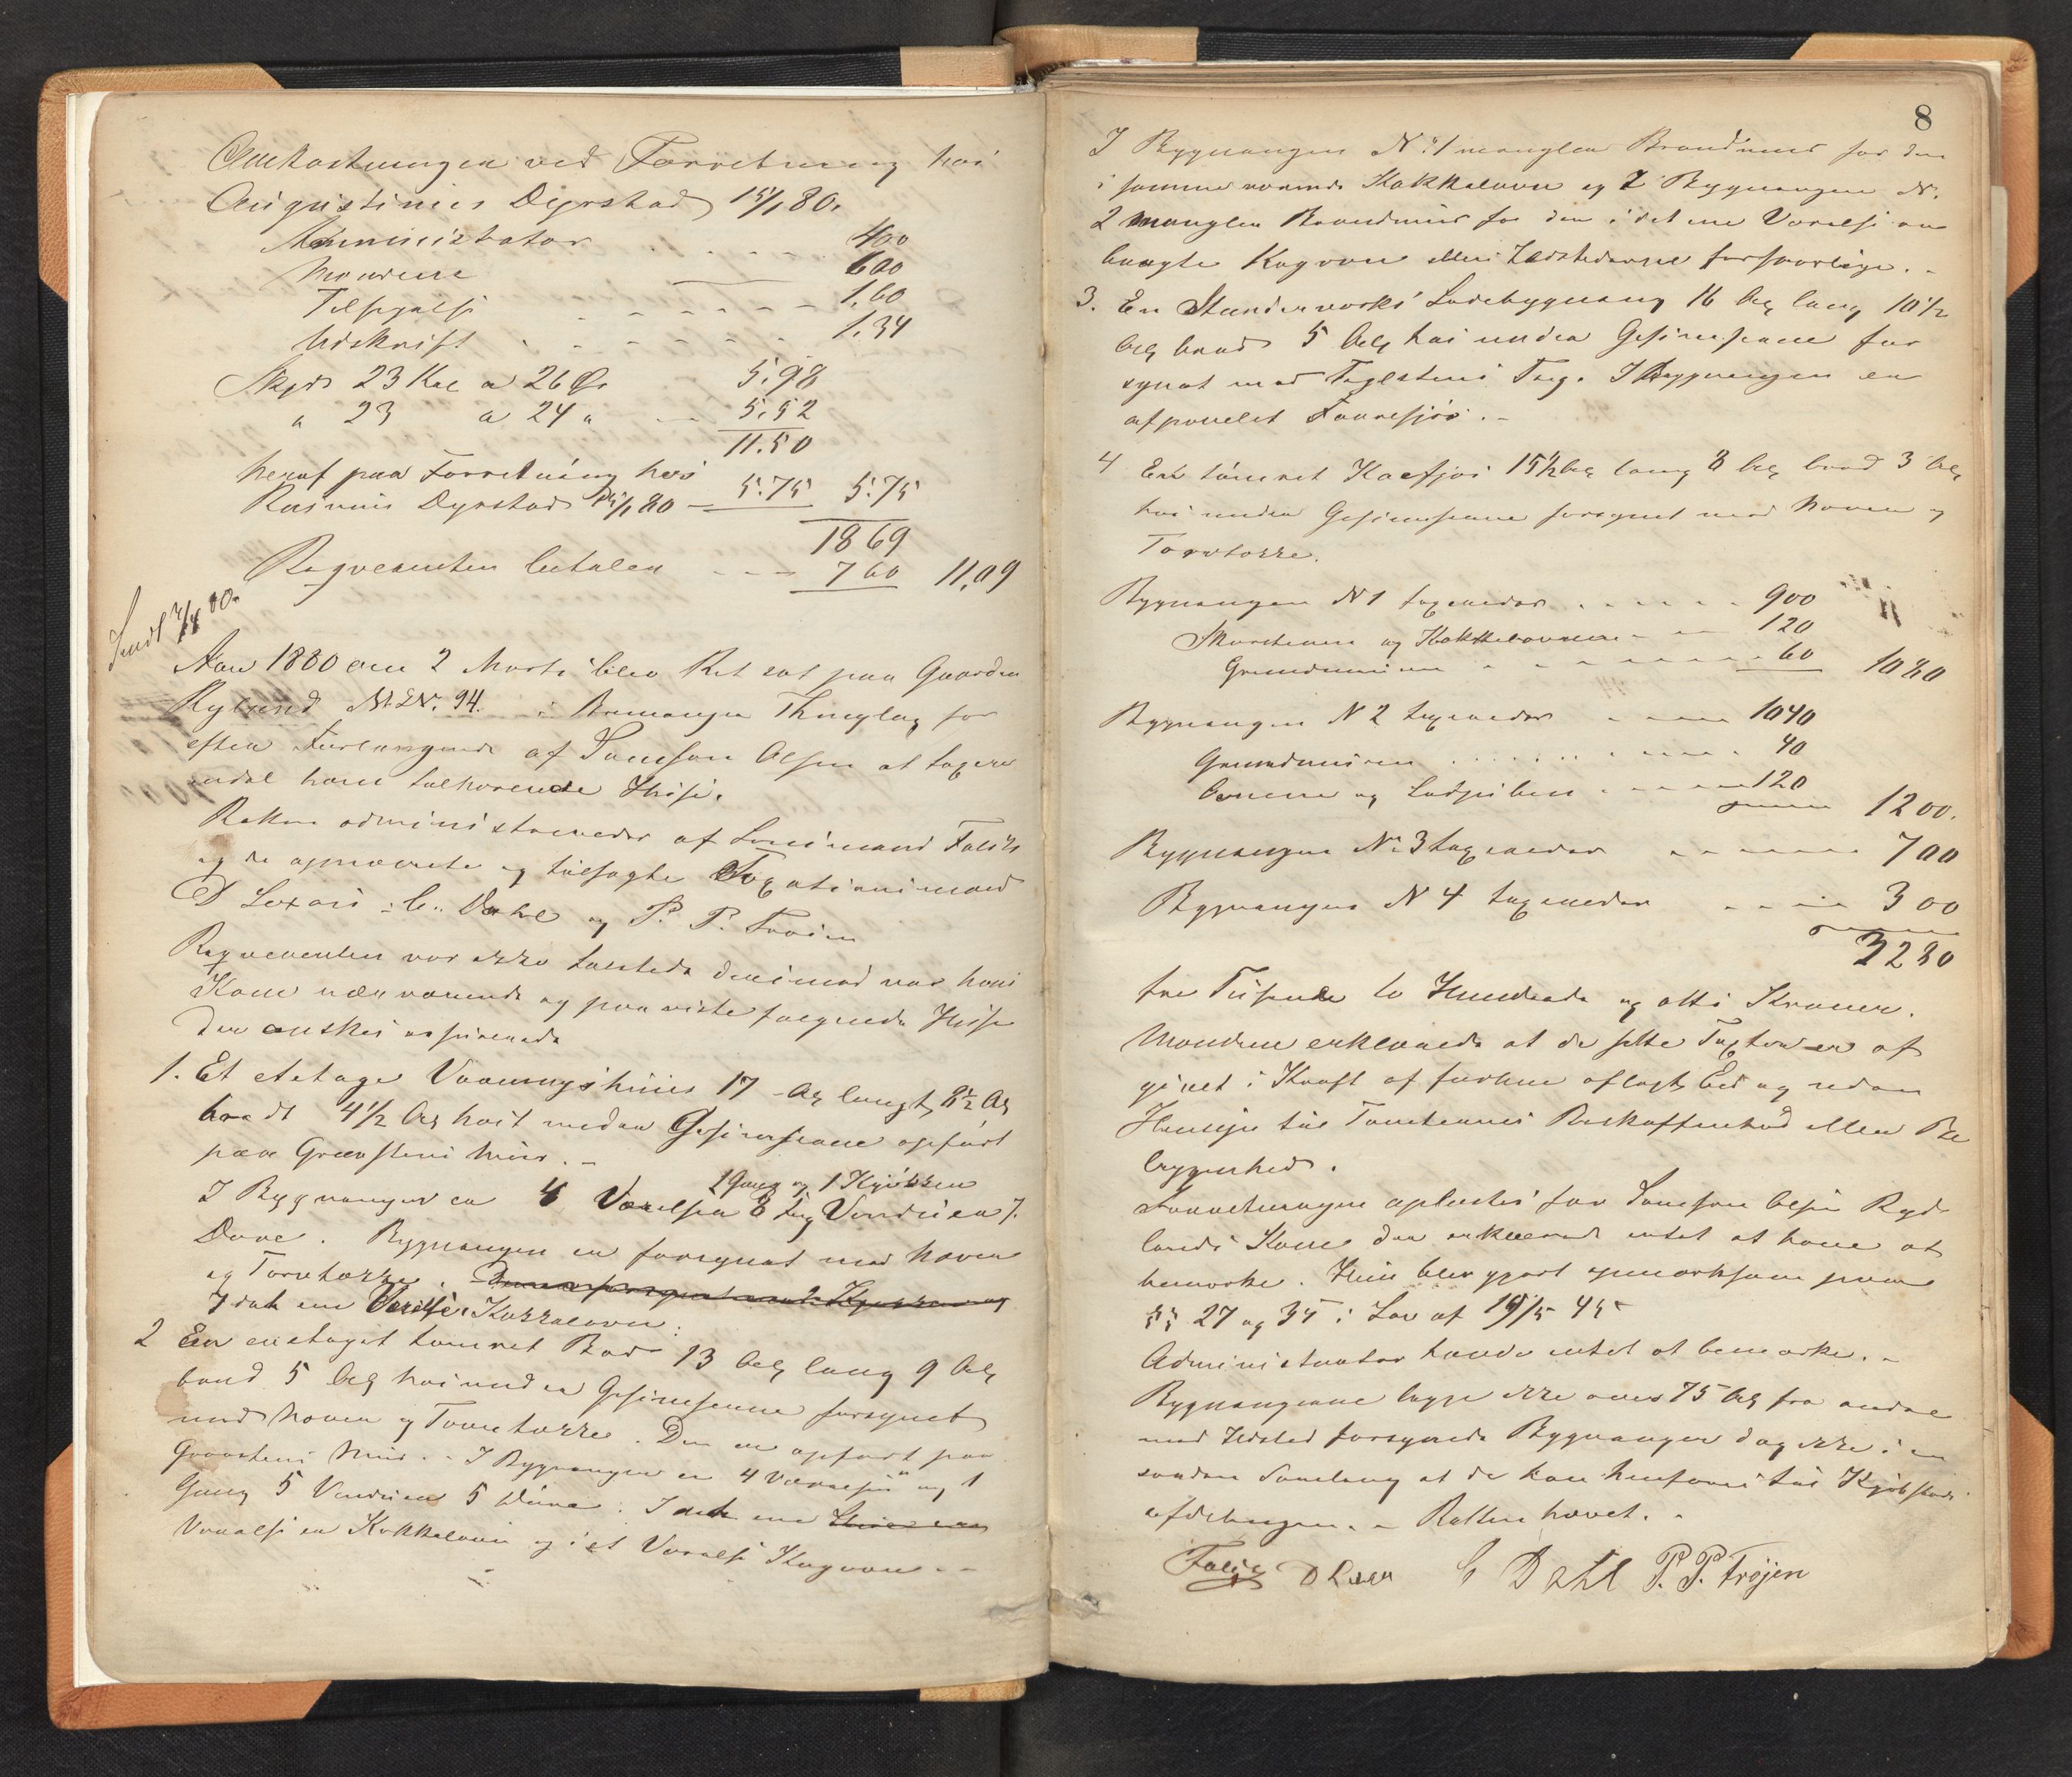 Omkostningen ved Forretning hos
Augustinus Dyrstad 15/1 80.
Administrator 400
Mændene 600
Tilsigelse 1,60
Udskrift 1.34
Skyds 23 Kil a 26 Øre 5.98
" 23 a 24 " 5.52
11.50
heraf paa Forretning hos
Rasmus Dyrstad 15/1 80 5.75 5.75
1869
Reqvirenten betaler 760 11,09
Aar 1880 den 2 Marts blev Ret sat paa Gaarden
Ryland M.L.Nr. 94. i Bremanger Thinglag for
efter Forlangende af Samson Olsen at taxere
endel ham tilhørende Huse.
Retten administreredes af Lensmand Falch
og de opnævnte og tilsagte Taxationsmænd
D C. Dahl og P. P. Frøien
Reqvirenten var ikke tilstede derimod var hans
Kone nærværende og paaviste følgende Huse
der ønskes assurerede
1. Et etetage Vaaningshuus 17 Al langt, 8½ Al
bredt 4½ Al høit under Gesimserne opført
paa Graastens Muur. –
1 Gang og 1 Kjøkken
I Bygningen er 4 Værelser 8 Fag Vinduer 7.
Døre. Bygningen er forsynet med Næver
og Torvtække.
I det ene Værelse Kakkelovn.
2 En enetaget tømret Bod 13 Al lang 9 Al
bred 5 Al høi under Gesimserne forsynet
med Næver og Torvtække. Den er opført paa
Graastens Muur. – I Bygningen er 4 Værelser og 1
Gang 5 Vinduer 5 Døre. I det ene
Værelse er Kakkelovn og i et Værelse Kogeovn. –
8
I Bygningen No 1 mangler Brandmuur for den
i samme værende Kakkelovn og I Bygningen No.
2 mangler Brandmuur for den i det ene Værelse an
bragte Kogeovn ellers Ildstederne forsvarlige. –
3. En Stænderværks Ladebygning 16 Al lang 10½
Al bred 5 Al høi under Gesimserne for
synet med Taglstens Tag. I Bygningen er
afpanelet Faarefjøs. –
4 En tømret Kofjøs 15½ Al lang 8 Al bred 3 Al
høi under Gesimserne forsynet med Næver og
Torvtække.
Bygningen N 1 taxeredes 900
Skorstenen og Kakkelovnene 120
Grundmuren 60 1080
Bygningen N 2 taxeredes 1040
Grundmuren 40
Ovnene og Ildpiben 120 1200.
Bygningen No 3 taxeredes 700
Bygningen N 4 taxeredes 300
3280
tre Tusende to Hundrede og otti Kroner.
Mændene erklærede at de satte Taxter er af
givet i Kraft af forhen aflagt Eed og uden
Hensyn til Tomternes Beskaffenhed eller Be
liggenhed.
Forretningen oplæstes for Samson Olsen Ryd
lands Kone der erklærede intet at have at
bemærke. Hun blev gjort opmærksom paa
§§ 27 og 34 i Lov af 19/5 45
Administrator havde intet at bemærke. –
Bygningerne ligge ikke over 75 Al fra andre
med Ildsted forsynede Bygninger dog ikke i en
saadan Samling at de kan henføres til Kjøbstads
afdelingen. – Retten hævet. –
Falch D C Dahl P. P. Frøjen